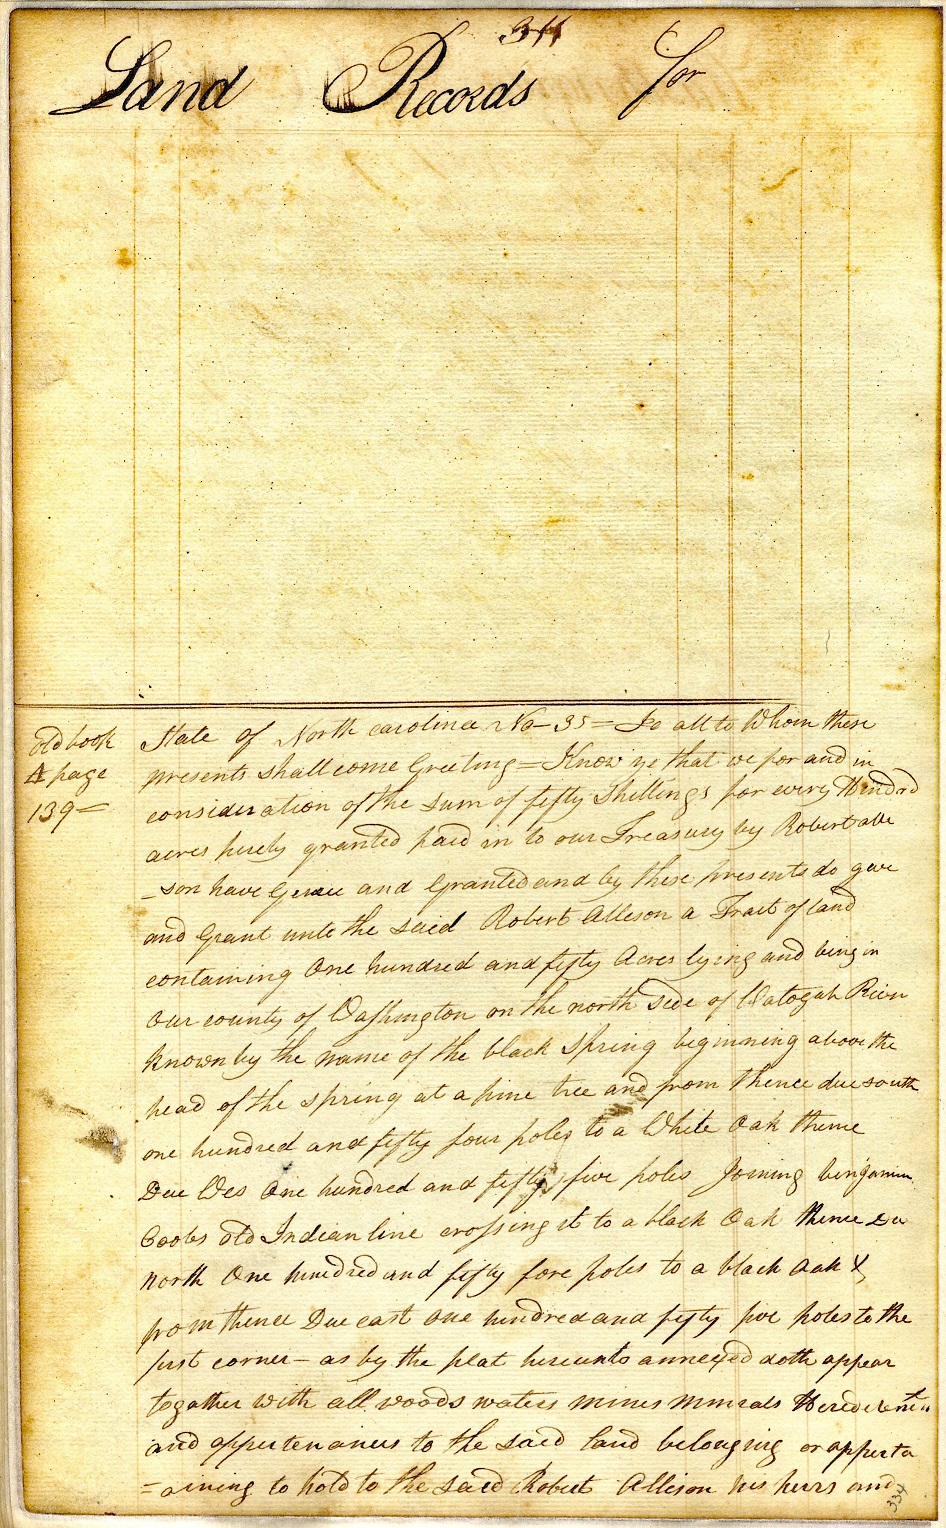 311
Land Records for
old book
A page
139=
State of North carolina No-35= To all to Whom these
presents shall come Greeting= Know ye that we for and in
consideration of the sum of fifty shillings for every Hundrd
acres herely granted paid in to our Treasury by Robert alle
-son have Geven and Granted and by these presents do geve
and Grant unto the saied Robert Alleson a Tract of land
containing One hundred and fifty Acres lying and being in
our county of Washington on the north side of Watogah River
known by the name of the black Spring beginning above the
head of the spring at a pine tree and from thence due south
one hundred and fifty four poles to a White Oak thence
Due Wes One hundred and fifty five poles Joining benjamin
Cobbs old Indian line crossing it to a black Oak thence Du
north One hundred and fifty fore poles to a black Oak &
from thence Due east one hundred and fifty five poles to the
first corner- as by the plat hereunto annexed doth appear
togather with all woods waters mines minirals
and appertenances to the said land belonging or apperta
=aining to hold to the said Robert Allison his heirs and
334